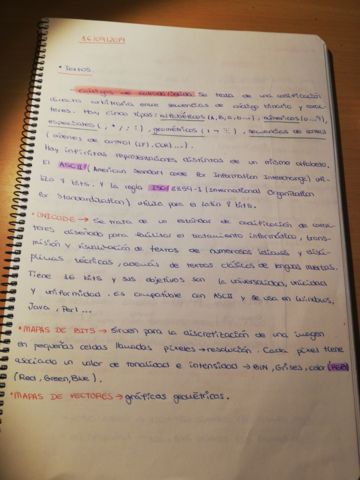 16/09/2019
• Textos.
códigos de entrada/salida: Se trata de una codificación
directa arbitraria entre secuencias de código binario y carac-
teres. Hay cinco tipos: alfabéticos (A, B, a, b ...), numéricos (0...9),
especiales (, * / ; !), geométricos, secuencias de control
(órdenes de control (LF), (CR) ...).
Hay infinitas representaciones distintas de un mismo alfabeto.
El ASCII (American Standard Code for Information Interchange) uti-
liza 7 bits. y la regla ISO/8859-1 (International Organization
for Standardization) utiliza para el latín 8 bits.
• UNICODE → Se trata de un estándar de codificación de carac-
teres diseñado para facilitar el tratamiento informático, trans-
misión y visualización de textos de numerosos idiomas y disci-
plinas técnicas, además de textos clásicos de lenguas muertas.
Tiene 16 bits y sus objetivos son la universalidad, unicidad
y uniformidad. Es compatible con ASCII y se usa en Windows,
Java, Perl ...
• MAPAS DE BITS → Sirven para la discretización de una imagen
en pequeñas celdas llamadas píxeles → resolución. Cada píxel tiene
asociado un valor de tonalidad e intensidad → B/N, Grises, color (RGB)
(Red, Green, Blue).
• MAPAS DE VECTORES → gráficas geométricas.